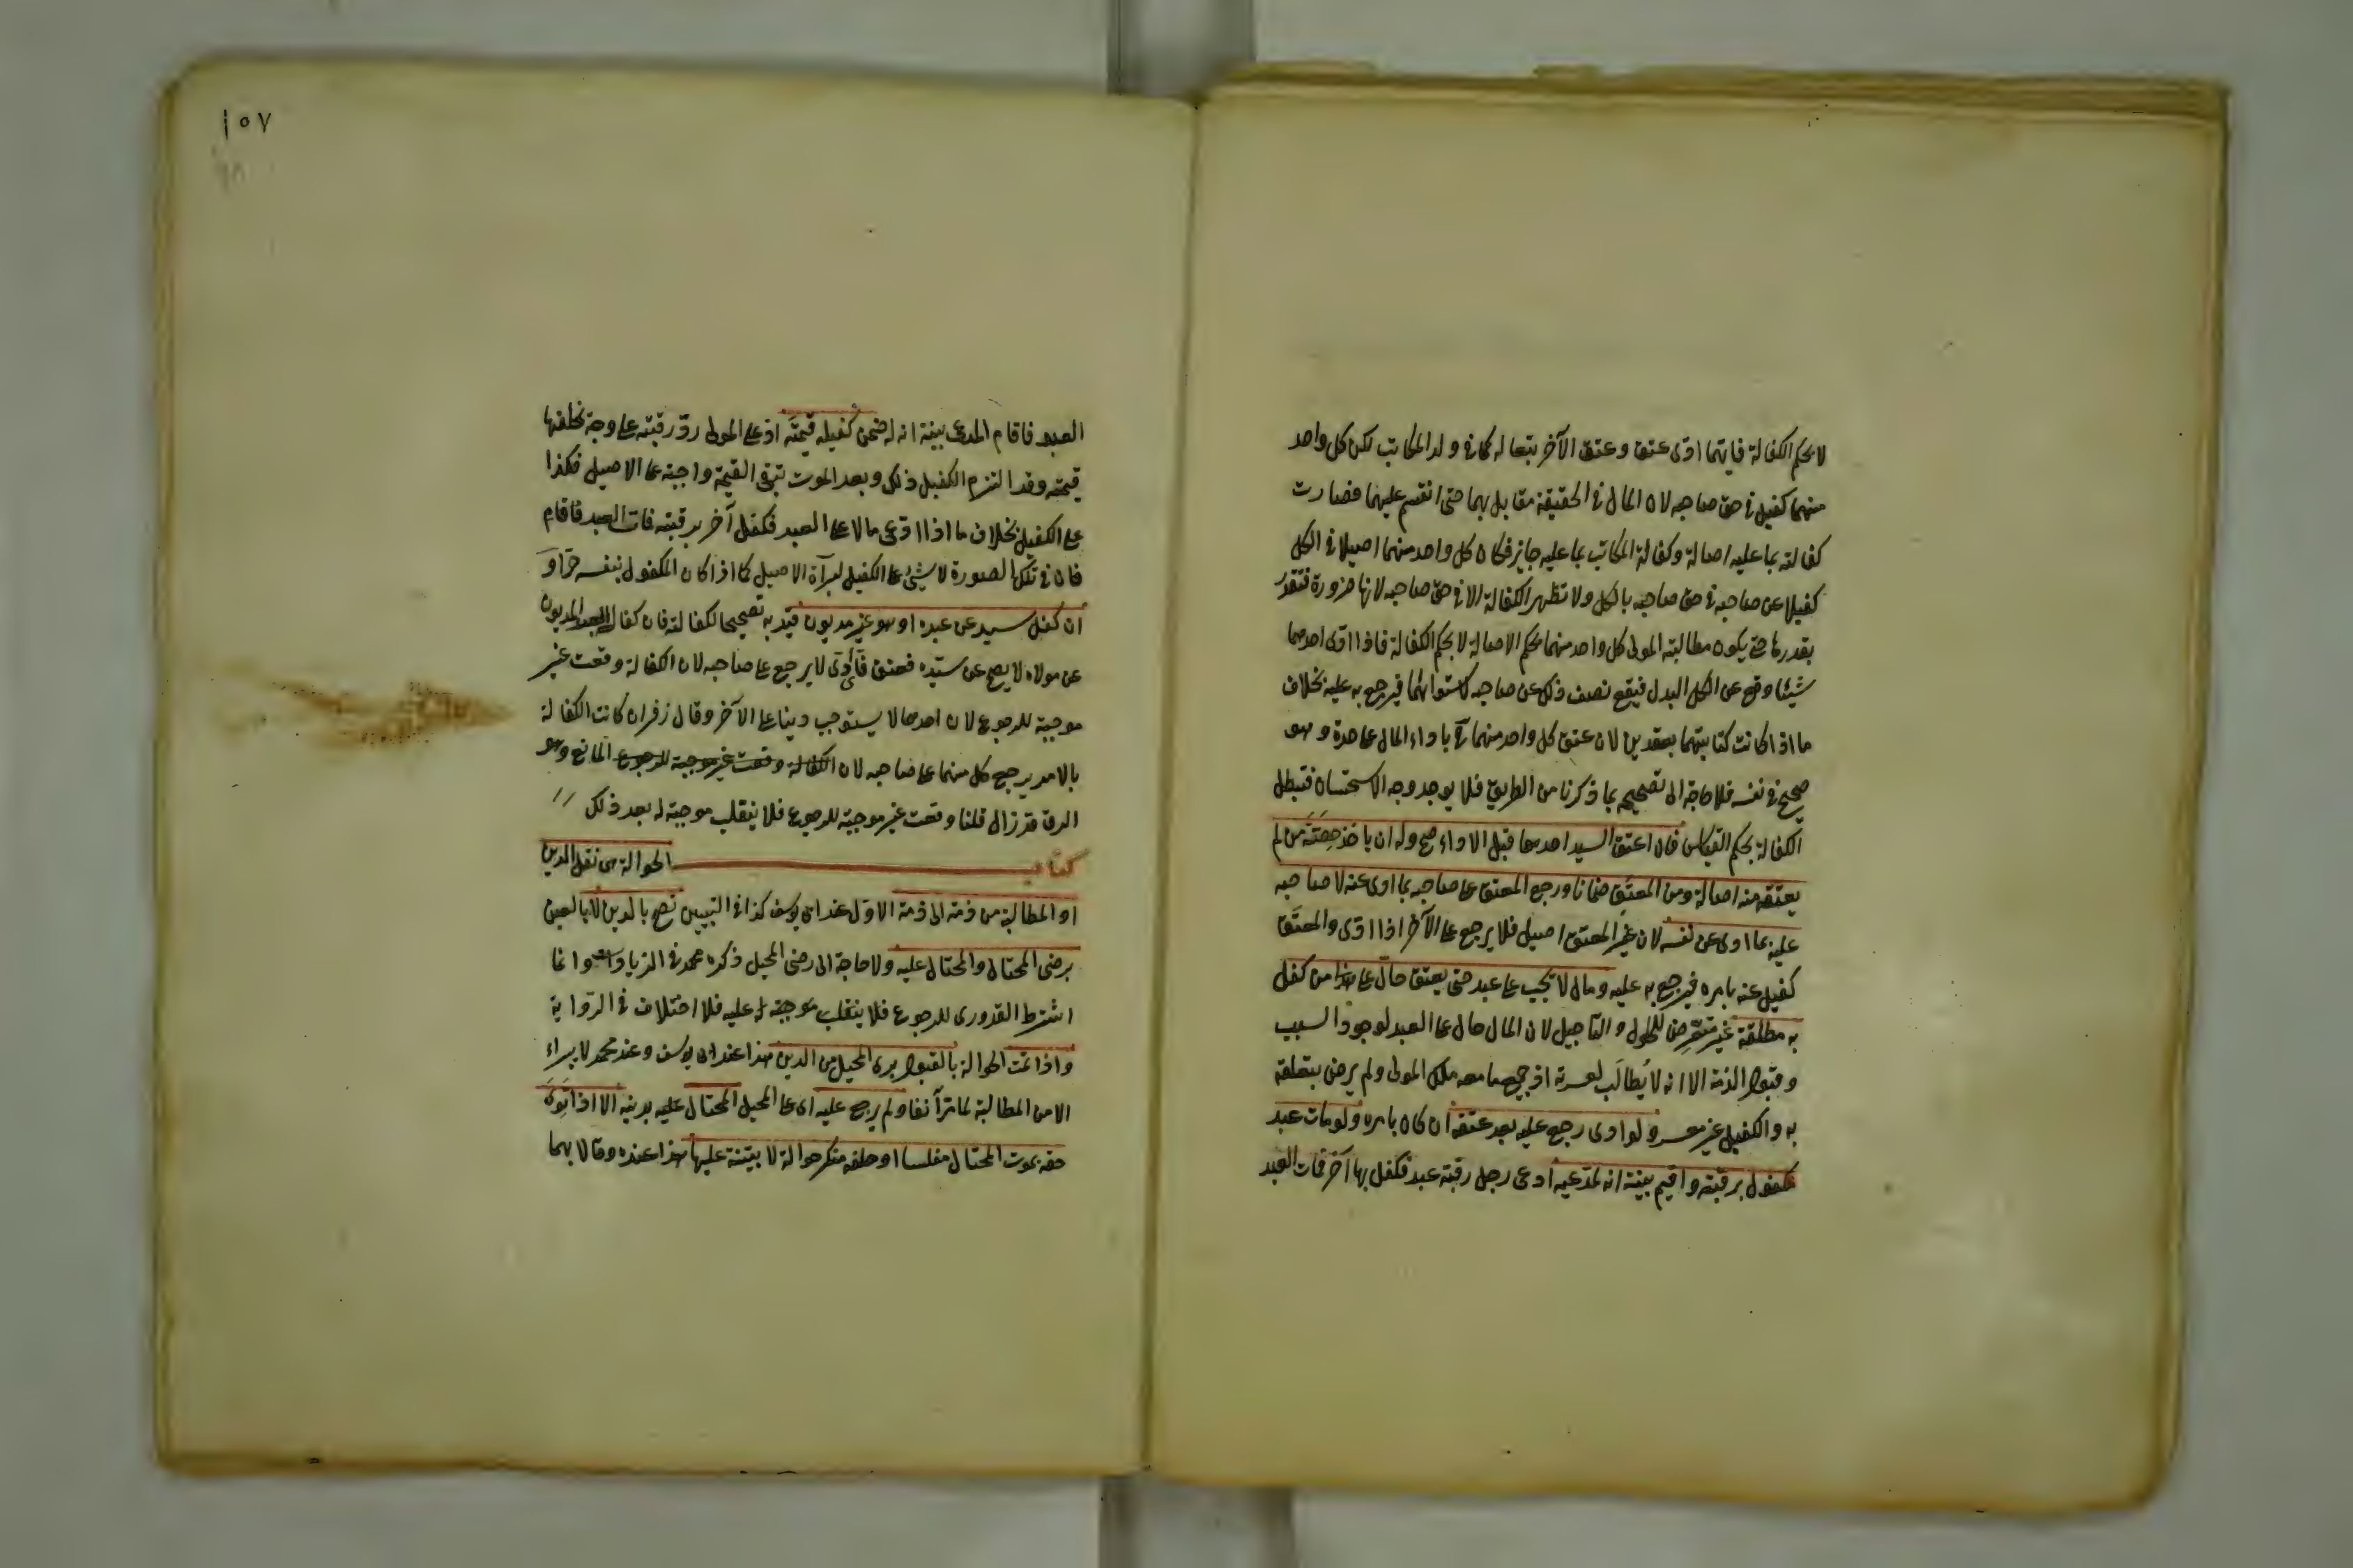 لا بحكم الكفالة فايهما ادى عتق وعتق الآخر بتعاله كما فى ولد المكاتب لكن كل واحد
منهما كفيل فى حق صاحبه لان المال فى الحقيقة مقابل بهما حتى انقسم عليهما فصارت
كفالته بما عليه اصالة وكفالة المكاتب بما عليه جايز فكان كل واحد منهما اصيلا فى الكل
كفيلا عن صاحبه فى حق صاحبه بالكل ولا تظهر الكفالة الا فى حق صاحبه لانها ضرورة فتقدر
بقدرها حتى يكون مطالبة المولى كل واحد منهما بحكم الاصالة لا بحكم الكفالة فاذا ادى احدهما
شيئا وقع عن الكل البدل فيقع نصف ذلك عن صاحبه لاستوائهما فيرجع به عليه بخلاف
ما اذا كانت كتابتهما بعقدين لان عتق كل واحد منهما باداء المال على حدة وهو
صحيح فى نفسه فلا حاجة الى تصحيحه بما ذكرنا من الطريق فلا يوجد وجه الاستحسان فتبطل
الكفالة بحكم القياس فان اعتق السيد احدهما قبل الاداء صح وله ان ياخذ حصته من لم
يعتقه منه اصالة ومن المعتق ضمانا ورجع المعتق على صاحبه بما ادى عنه لا صاحبه
عليه بما ادى عن نفسه لان غير المعتق اصيل فلا يرجع على الآخر اذا ادى والمعتق
كفيل عنه بامره فيرجع به عليه ومال لا تجب على عبد حتى يعتق حال على من كفل
به مطلقة غير متعرض للحلول والتاجيل لان المال حال على العبد لوجود السبب
وقبول الذمة الا انه لا يطالب لعسرته اذ جميع ما معه ملك المولى ولم يرض بتعلقه
به والكفيل غير معسر ولو ادى رجع عليه بعد عتقه ان كان بامره ولو مات عبد
مكفول برقبته واقيم بينة انه لمدعيه ادعى رجل رقبة عبد فكفل بها آخر فمات العبد
١٥٧
العبد فاقام المدعى بينة انه له ضمن كفيله قيمته اذ على المولى رد رقبته على وجه تخلفها
قيمته وقد التزم الكفيل ذلك وبعد الموت تبقى القيمة واجبة على الاصيل فكذا
على الكفيل بخلاف ما اذا ادعى مالا على العبد فكفل آخر برقبته فمات العبد فاقام
فان فى تلك الصورة لا شئ على الكفيل لبرآة الاصيل كما اذا كان المكفول بنفسه حرا و
ان كفل سيد عن عبده او هو غير مديون قيد به تصحيحا لكفالته فان كفالة العبد المديون
عن مولاه لا يصح عن سيده فعتق فادى لا يرجع على صاحبه لان الكفالة وقعت غير
موجبة للرجوع لان احدهما لا يستوجب دينا على الآخر وقال زفر ان كانت الكفالة
بالامر يرجع كل منهما على صاحبه لان الكفالة وقعت غير موجبة للرجوع المانع وهو
الرق قد زال قلنا وقعت غير موجبة للرجوع فلا ينقلب موجبة له بعد ذلك
كتاب الحوالة هى نقل الدين
او المطالبة من ذمة الى ذمة الاول عند ابى يوسف كذا فى التبيين تصح بالدين لا بالعين
برضى المحتال والمحتال عليه ولا حاجة الى رضى المحيل ذكره محمد فى الزيادات وانما
اشترط القدورى للرجوع فلا ينقلب موجبة له عليه فلا اختلاف فى الرواية
واذا تمت الحوالة بالقبول برى المحيل من الدين هذا عند ابى يوسف وعند محمد لا يبراء
الا من المطالبة لما مر آنفا ولم يرجع عليه اى على المحيل المحتال عليه بدينه الا اذا توى
حقه بموت المحتال مفلسا او حلفه منكر حوالة لا بينة عليها هذا عنده وقالا بهما